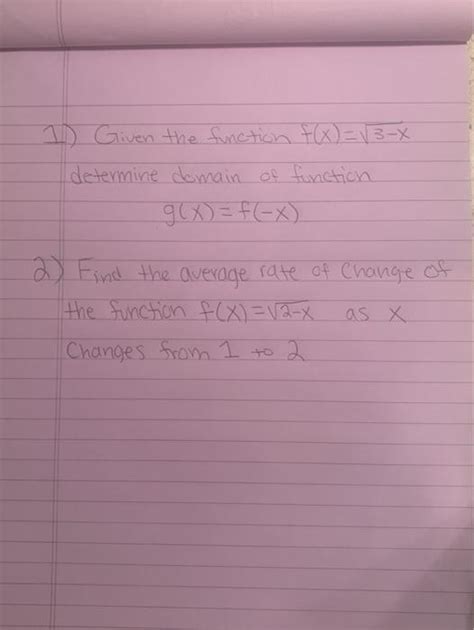 1) Given the function f(x)=√3-x
determine domain of function
g(x)=f(-x)
2) Find the average rate of change of
the function f(x)=√2-x as x
Changes from 1 to 2